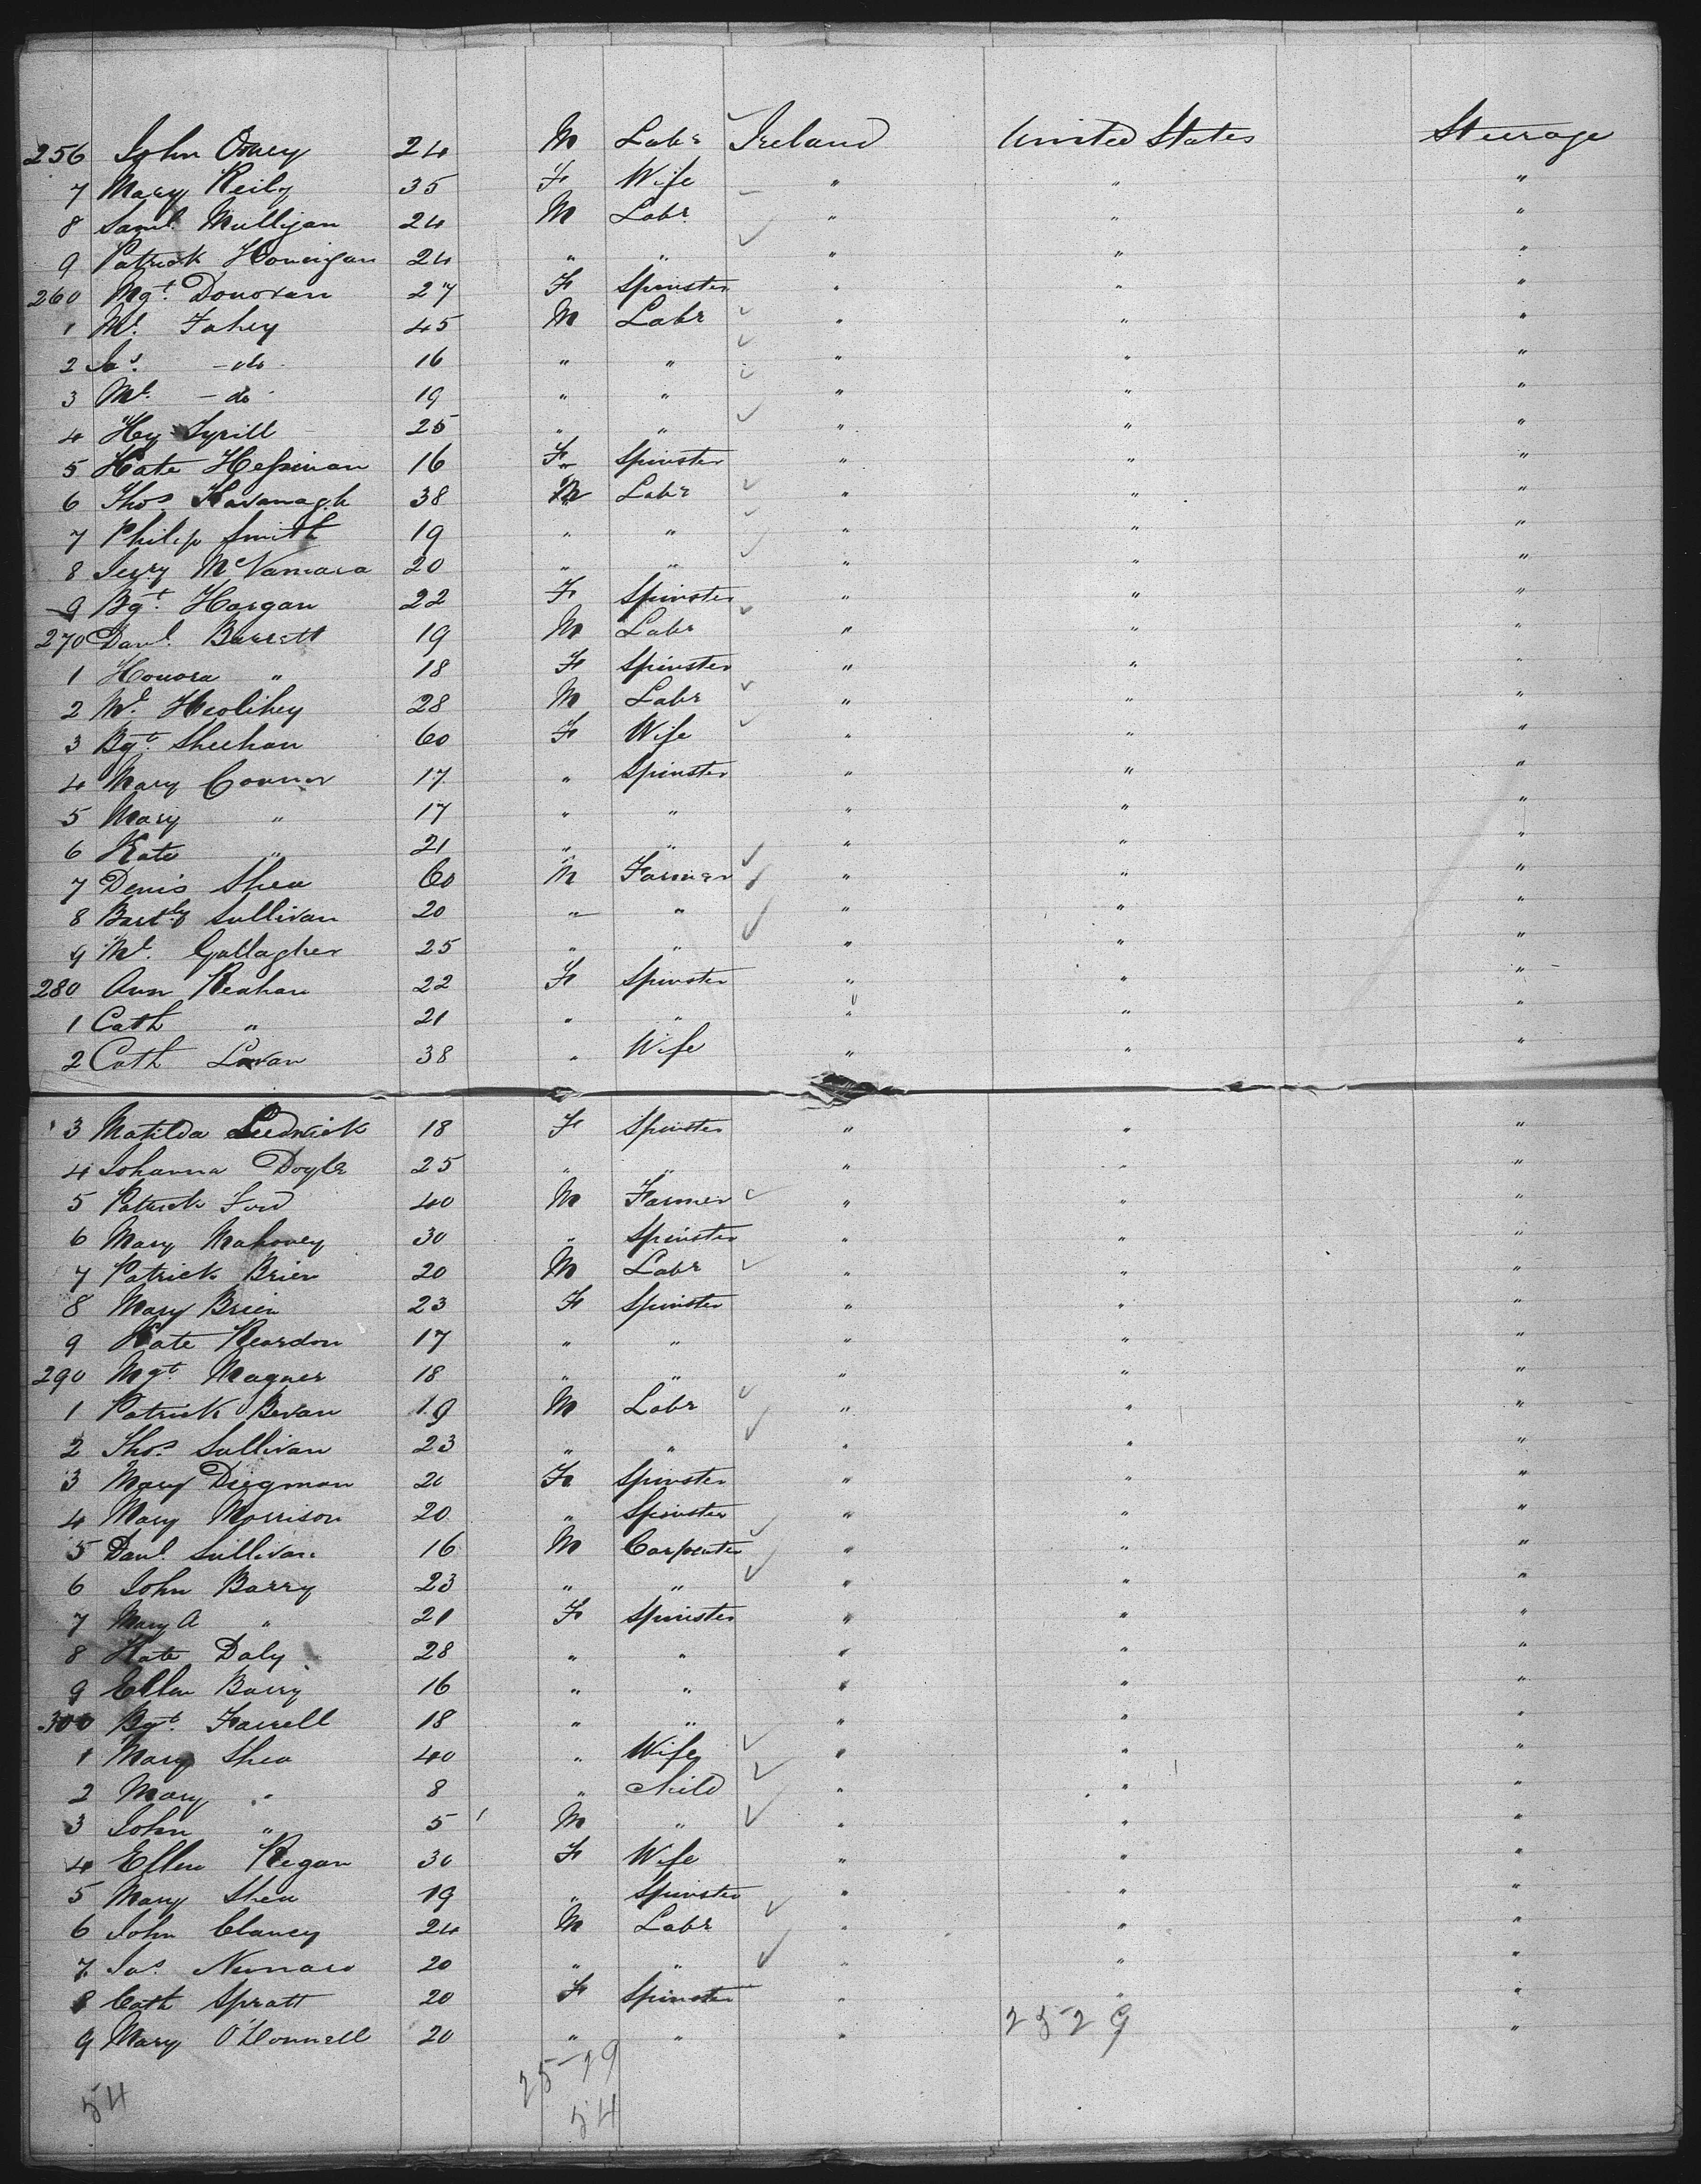 256 John Oney 24 M Labr Ireland United States Steerage
7 Mary Reily 35 F Wife " " "
8 Saml. Mulligan 24 M Labr " " "
9 Patrick 24 " " " " "
260 Mgt. Donovan 27 F Spinster " " "
1 Ml. Fahey 45 M Labr " " "
2 Jas. - do - 16 " " " " "
3 Ml. - do 19 " " " " "
4 Hy 25 " " " " "
5 Kate 16 F Spinster " " "
6 Thos. Kavanagh 38 M Labr " " "
7 Philip Smith 19 " " " " "
8 Jerry McNamara 20 " " " " "
9 Bgt. Horgan 22 F Spinster " " "
270 Danl. Barrett 19 M Labr " " "
1 Honora " 18 F Spinster " " "
2 Ml. 28 M Labr " " "
3 Bgt. Sheehan 60 F Wife " " "
4 Mary Connor 17 " Spinster " " "
5 Mary " 17 " " " " "
6 Kate " 21 " " " " "
7 Denis Shea 60 M Farmer " " "
8 Bartly Sullivan 20 " " " " "
9 Ml. Gallagher 25 " " " " "
280 Ann Reahan 22 F Spinster " " "
1 Cath " 21 " " " " "
2 Cath 38 " Wife " " "
3 Matilda Ludwick 18 F Spinster " " "
4 Johanna Doyle 25 " " " " "
5 Patrick Ford 40 M Farmer " " "
6 Mary Mahoney 30 " Spinster " " "
7 Patrick Brien 20 M Labr " " "
8 Mary Brien 23 F Spinster " " "
9 Kate Reardon 17 " " " " "
290 Mgt. Magner 18 " " " " "
1 Patrick Bevan 19 M Labr " " "
2 Thos. Sullivan 23 " " " " "
3 Mary Diegman 20 F Spinster " " "
4 Mary Morrison 20 " Spinster " " "
5 Danl. Sullivan 16 M Carpenter " " "
6 John Barry 23 " " " " "
7 Mary A " 21 F Spinster " " "
8 Kate Daly 28 " " " " "
9 Ellen Barry 16 " " " " "
300 Bgt. Farrell 18 " " " " "
1 Mary Shea 40 " Wife " " "
2 Mary " 8 " Child " " "
3 John " 5 M " " " "
4 Ellen Regan 30 F Wife " " "
5 Mary Shea 19 " Spinster " " "
6 John Clancy 24 M Labr " " "
7 Jas. 20 " " " " "
8 Cath Spratt 20 F Spinster " " "
9 Mary O'Donnell 20 " " " 2529 "
25-29
54 54